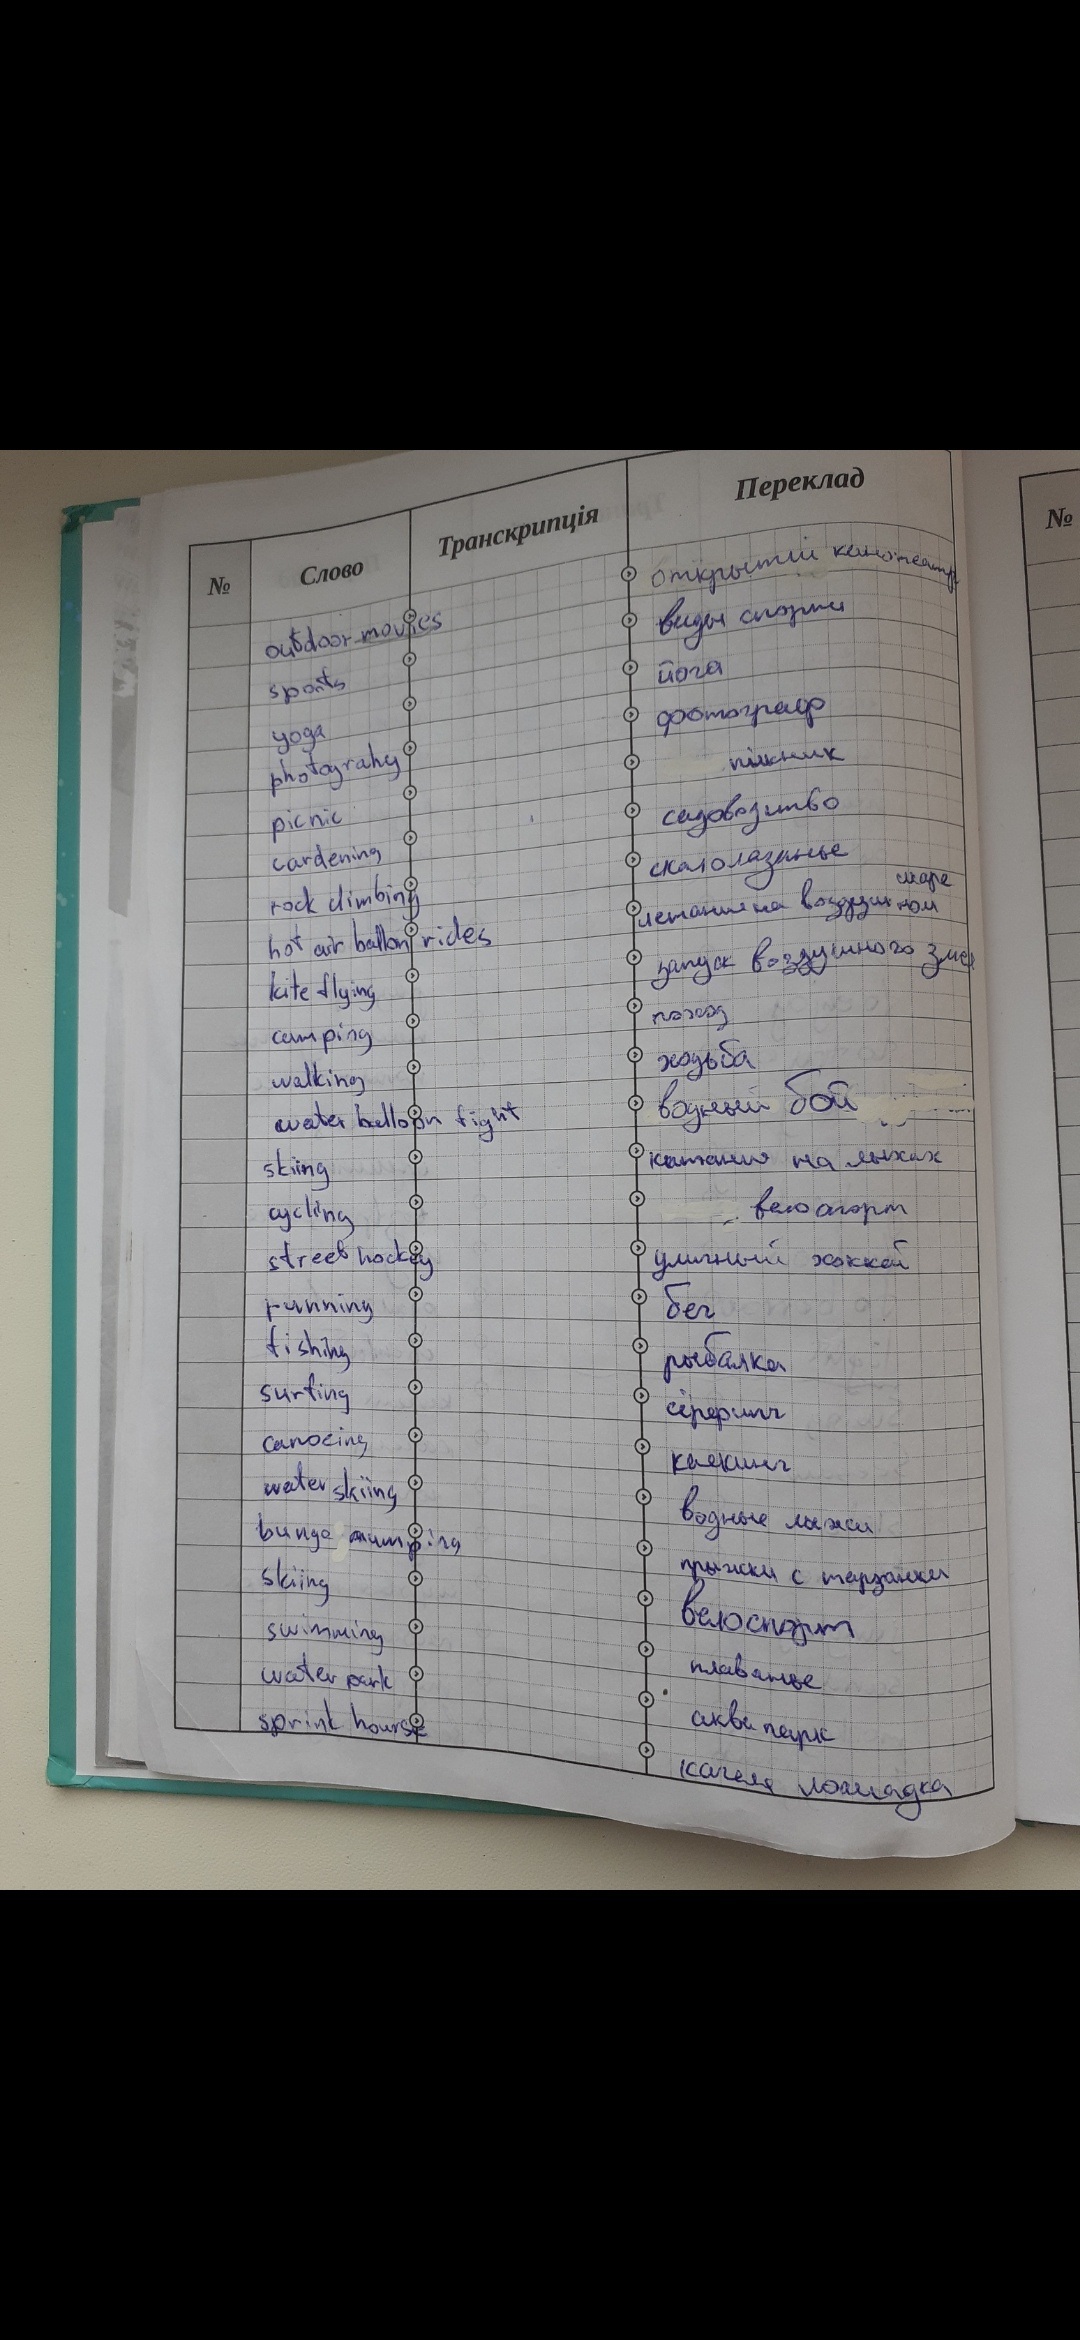 № Слово Транскрипція Переклад №
outdoor movies открытый кинотеатр
sports виды спорта
yoga йога
photograhy фотограф
picnic пикник
cardening садоводство
rock climbing скалолазанье
hot air ballon rides летание на воздушном шаре
kite flying запуск воздушного змея
camping поход
walking ходьба
water balloon fight водный бой
skiing катание на лыжах
cycling велоспорт
street hockey уличный хоккей
running бег
fishing рыбалка
surfing сёрфинг
canoeing каякинг
water skiing водные лыжи
bunge jumping прыжки с тарзанки
skiing велоспорт
swimming плаванье
water park аквапарк
sprink hourse качеля лошадка